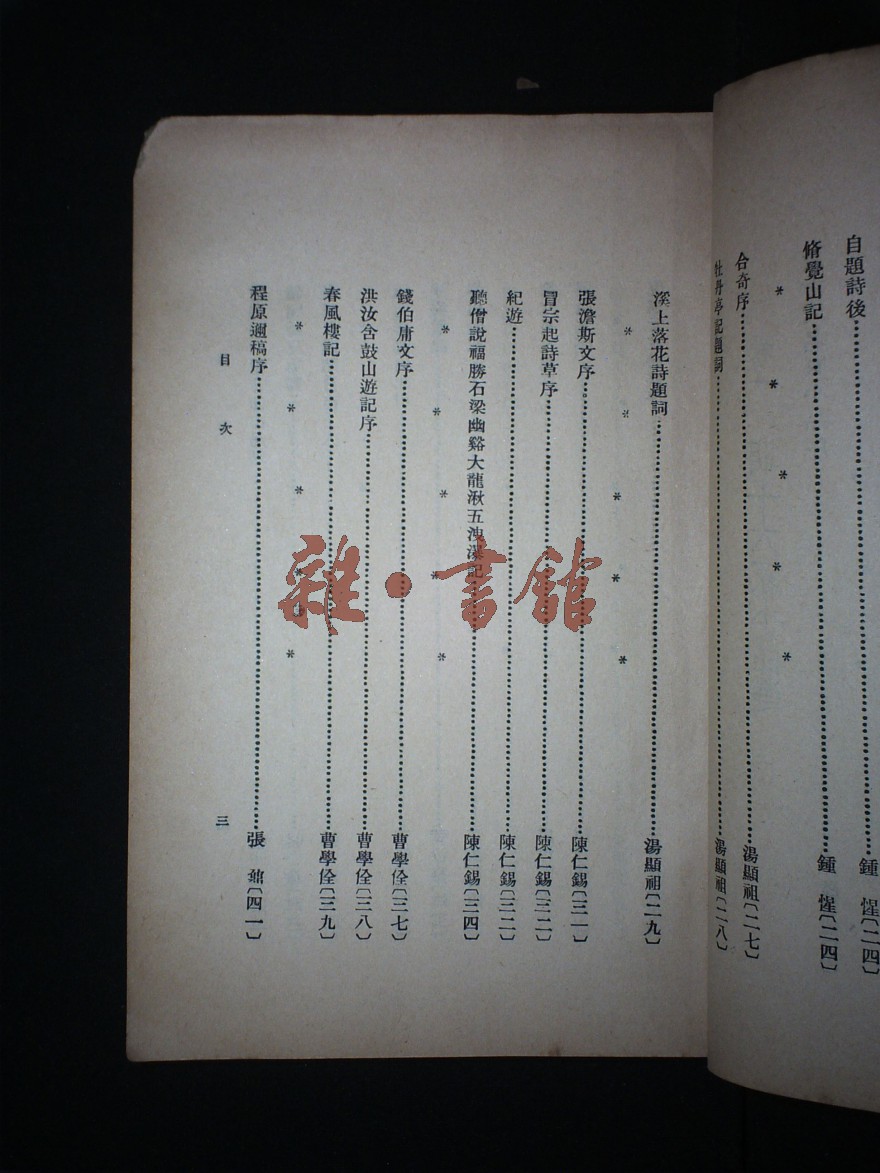 自題詩後……鍾　惺〔二四〕
脩覺山記……鍾　惺〔二四〕
＊　＊　＊　＊　＊
合奇序……湯顯祖〔二七〕
牡丹亭記題詞……湯顯祖〔二八〕
溪上落花詩題詞……湯顯祖〔二九〕
＊　＊　＊　＊　＊
張澹斯文序……陳仁錫〔三一〕
冒宗起詩草序……陳仁錫〔三二〕
紀遊……陳仁錫〔三二〕
聽僧說福勝石梁幽谿大龍湫五洩瀑記……陳仁錫〔三四〕
＊　＊　＊　＊　＊
錢伯庸文序……曹學佺〔三七〕
洪汝含鼓山遊記序……曹學佺〔三八〕
春風樓記……曹學佺〔三九〕
＊　＊　＊　＊　＊
程原邇稿序……張　鼐〔四一〕
目　次　三
雜·書館